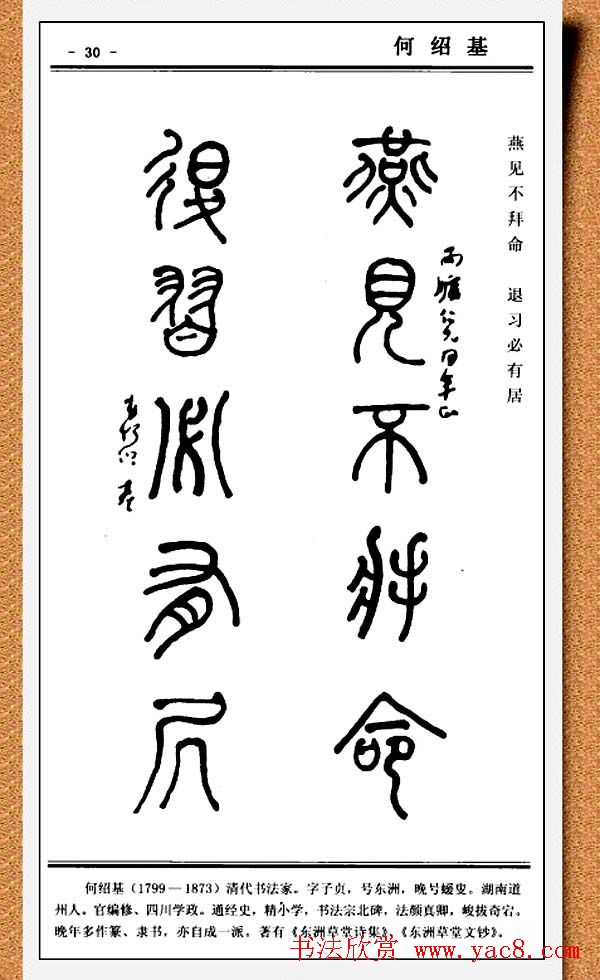 - 30 -
何绍基
燕见不拜命 退习必有居
燕見不拜命
退習必有凥
何绍基(1799—1873)清代书法家。字子贞,号东洲,晚号蝯叟。湖南道
州人。官编修、四川学政。通经史,精小学,书法宗北碑,法颜真卿,峻拔奇宕。
晚年多作篆、隶书,亦自成一派,著有《东洲草堂诗集》,《东洲草堂文钞》。
书法欣赏 www.yac8.com